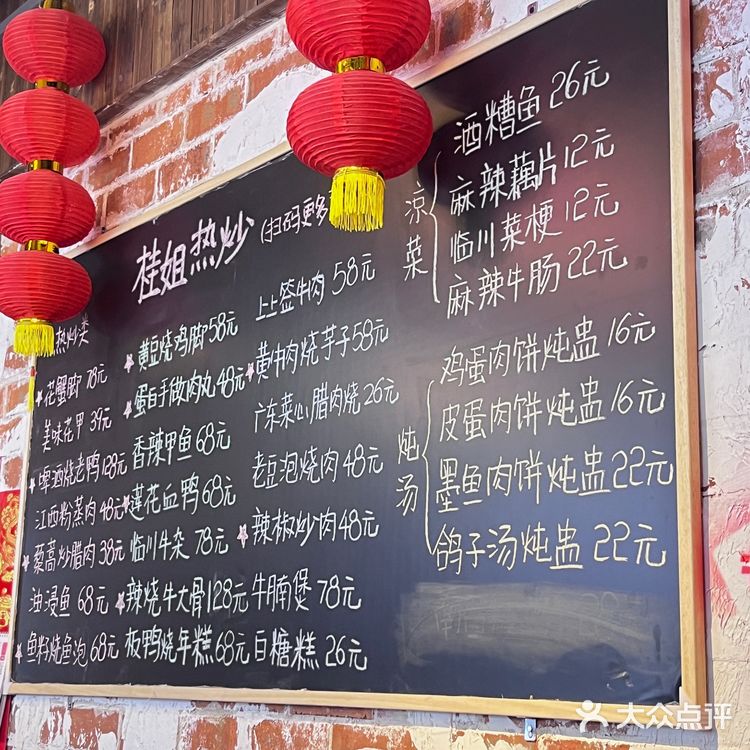 桂姐热炒(扫码更多
热炒类
花蟹脚 78元
美味花甲 39元
啤酒烧老鸭128元
江西粉蒸肉 48元
藜蒿炒腊肉 38元
油浸鱼 68元
鱼籽烧鱼泡 68元
黄豆烧鸡脚 58元
蛋白手做肉丸 48元
香辣甲鱼 68元
莲花血鸭 68元
临川牛杂 78元
辣烧牛大骨128元
板鸭烧年糕 68元
上上签牛肉 58元
黄牛肉烧芋子58元
广东菜心腊肉烧 26元
老豆泡烧肉 48元
辣椒炒肉48元
牛腩煲 78元
白糖糕 26元
凉菜
酒糟鱼 26元
麻辣藕片12元
临川菜梗 12元
麻辣牛肠 22元
炖汤
鸡蛋肉饼炖盅 16元
皮蛋肉饼炖盅 16元
墨鱼肉饼炖盅22元
鸽子汤炖盅 22元
大众点评